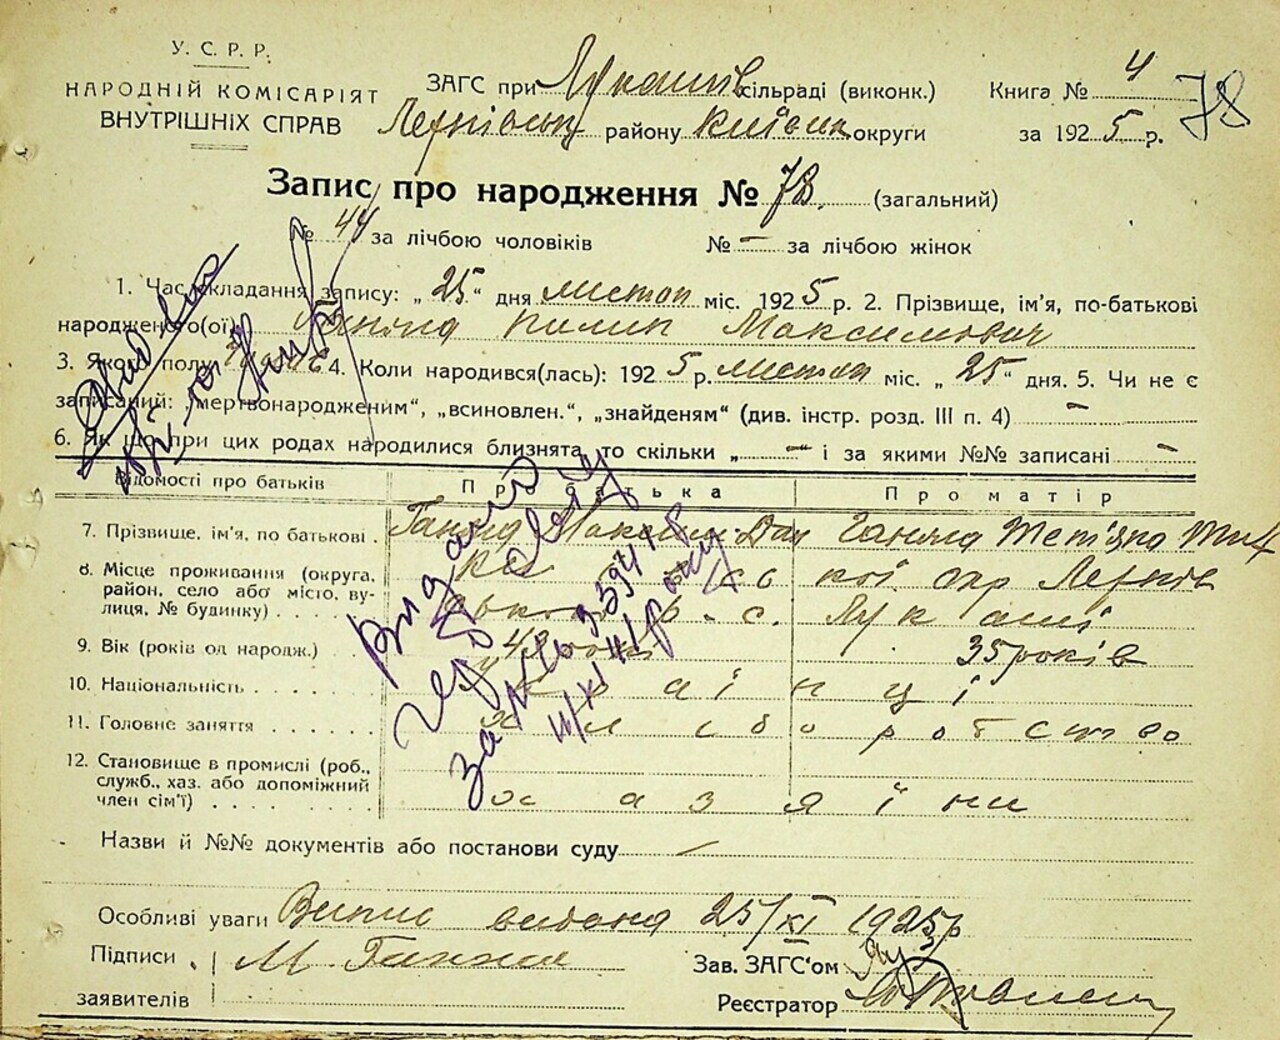 У. С. Р. Р.
НАРОДНІЙ КОМІСАРІЯТ
ВНУТРІШНІХ СПРАВ
ЗАГС при Лукашів сільраді (виконк.)
району Київськ округи
Книга № 4
за 1925 р.
78
Запис про народження № 78. (загальний)
№ 44 за лічбою чоловіків № — за лічбою жінок
1. Час складання запису: „25“ дня листоп міс. 1925 р. 2. Прізвище, ім'я, по-батькові
народженого(ої) Пилип Максимович
3. Якого полу 4. Коли народився(лась): 1925 р. листоп міс. „25“ дня. 5. Чи не є
записаний: „мертвонародженим“, „всиновлен.“, „знайденям“ (див. інстр. розд. III п. 4) —
6. Як що при цих родах народилися близнята, то скільки „ — “ і за якими №№ записані —
Відомості про батьків Про батька Про матір
7. Прізвище, ім'я, по батькові . Максим Дан Тетяна
8. Місце проживання (округа,
район, село або місто, ву-
лиця, № будинку) . . . Ки кої окр
с. Лукаші
9. Вік (років од народж.) 43 роки 35 років
10. Національність . . . . . . українці
11. Головне заняття . . . . . . хліборобство
12. Становище в промислі (роб.,
служб., хаз. або допоміжний
член сім'ї) . . . . . . . . хазяїни
Виданий
за № 359478
11/XI 41 року
Назви й №№ документів або постанови суду —
Особливі уваги Випис видана 25/XI 1925 р
Підписи
заявителів
М.
Зав. ЗАГС'ом
Реєстратор